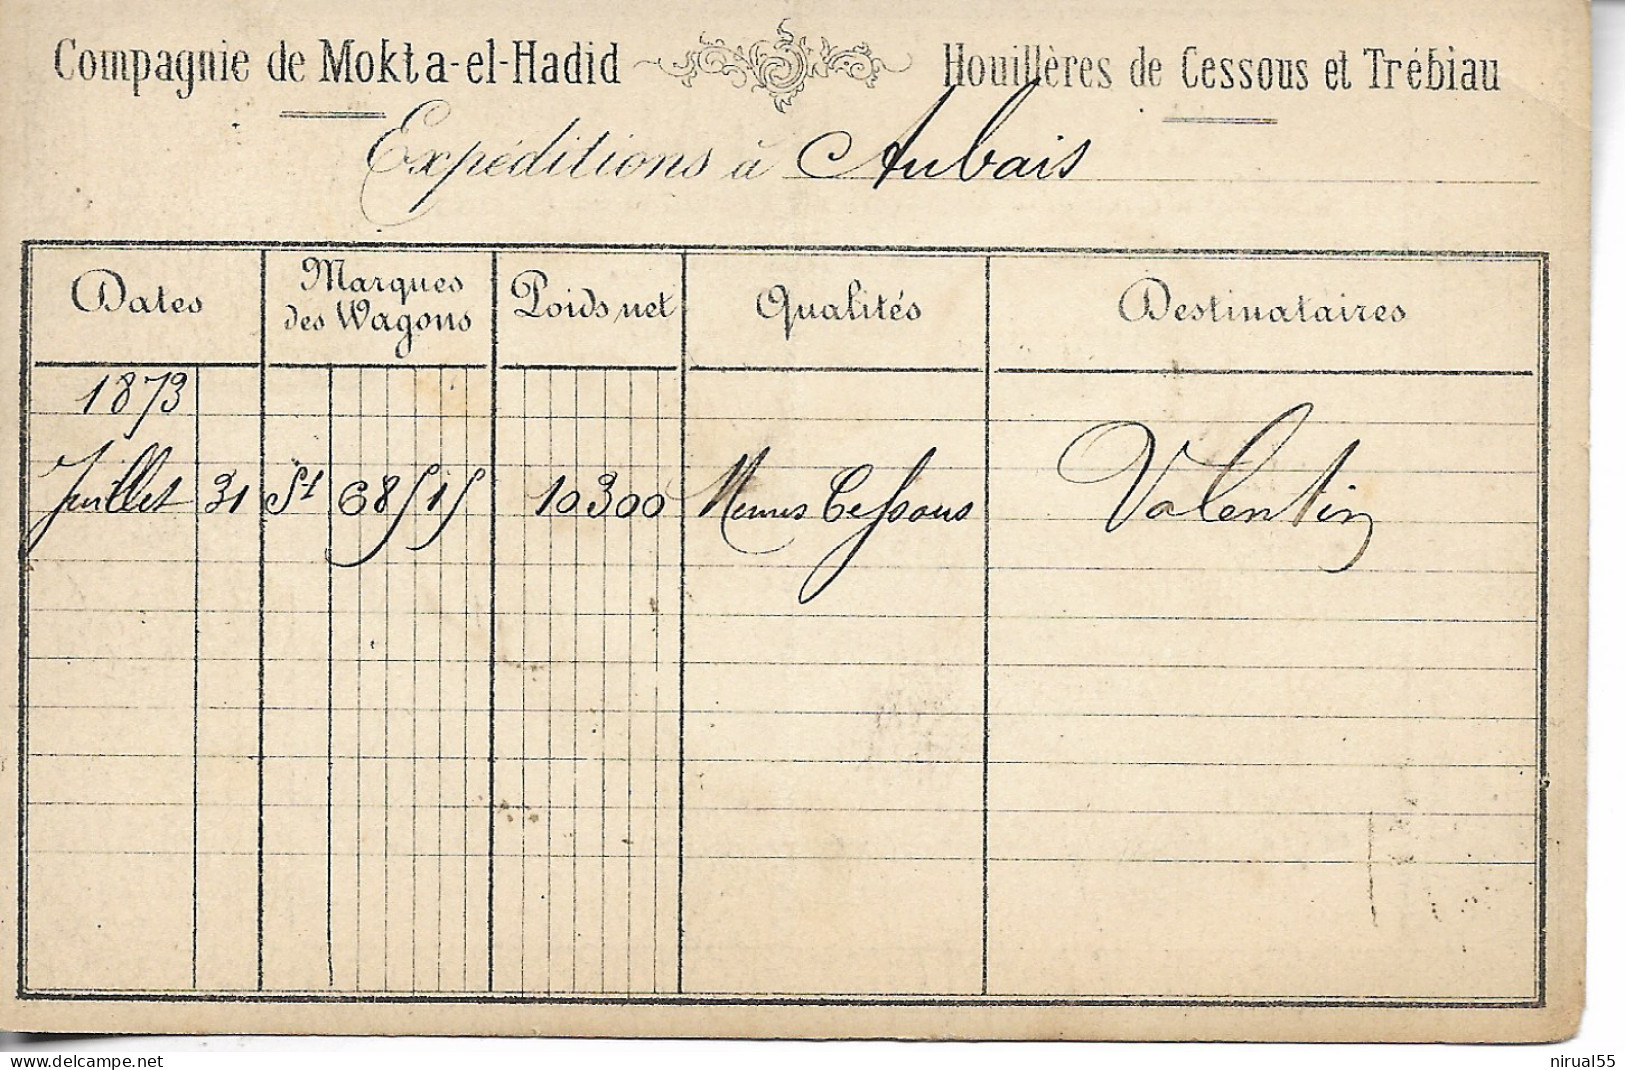 Compagnie de Mokta-el-Hadid Houillères de Cessous et Trébiau
Expéditions à Aubais
Dates Marques des Wagons Poids net Qualités Destinataires
1873
Juillet 31 St 68515 10300 Menus Cessous Valentin
delcampe.net
nirual55